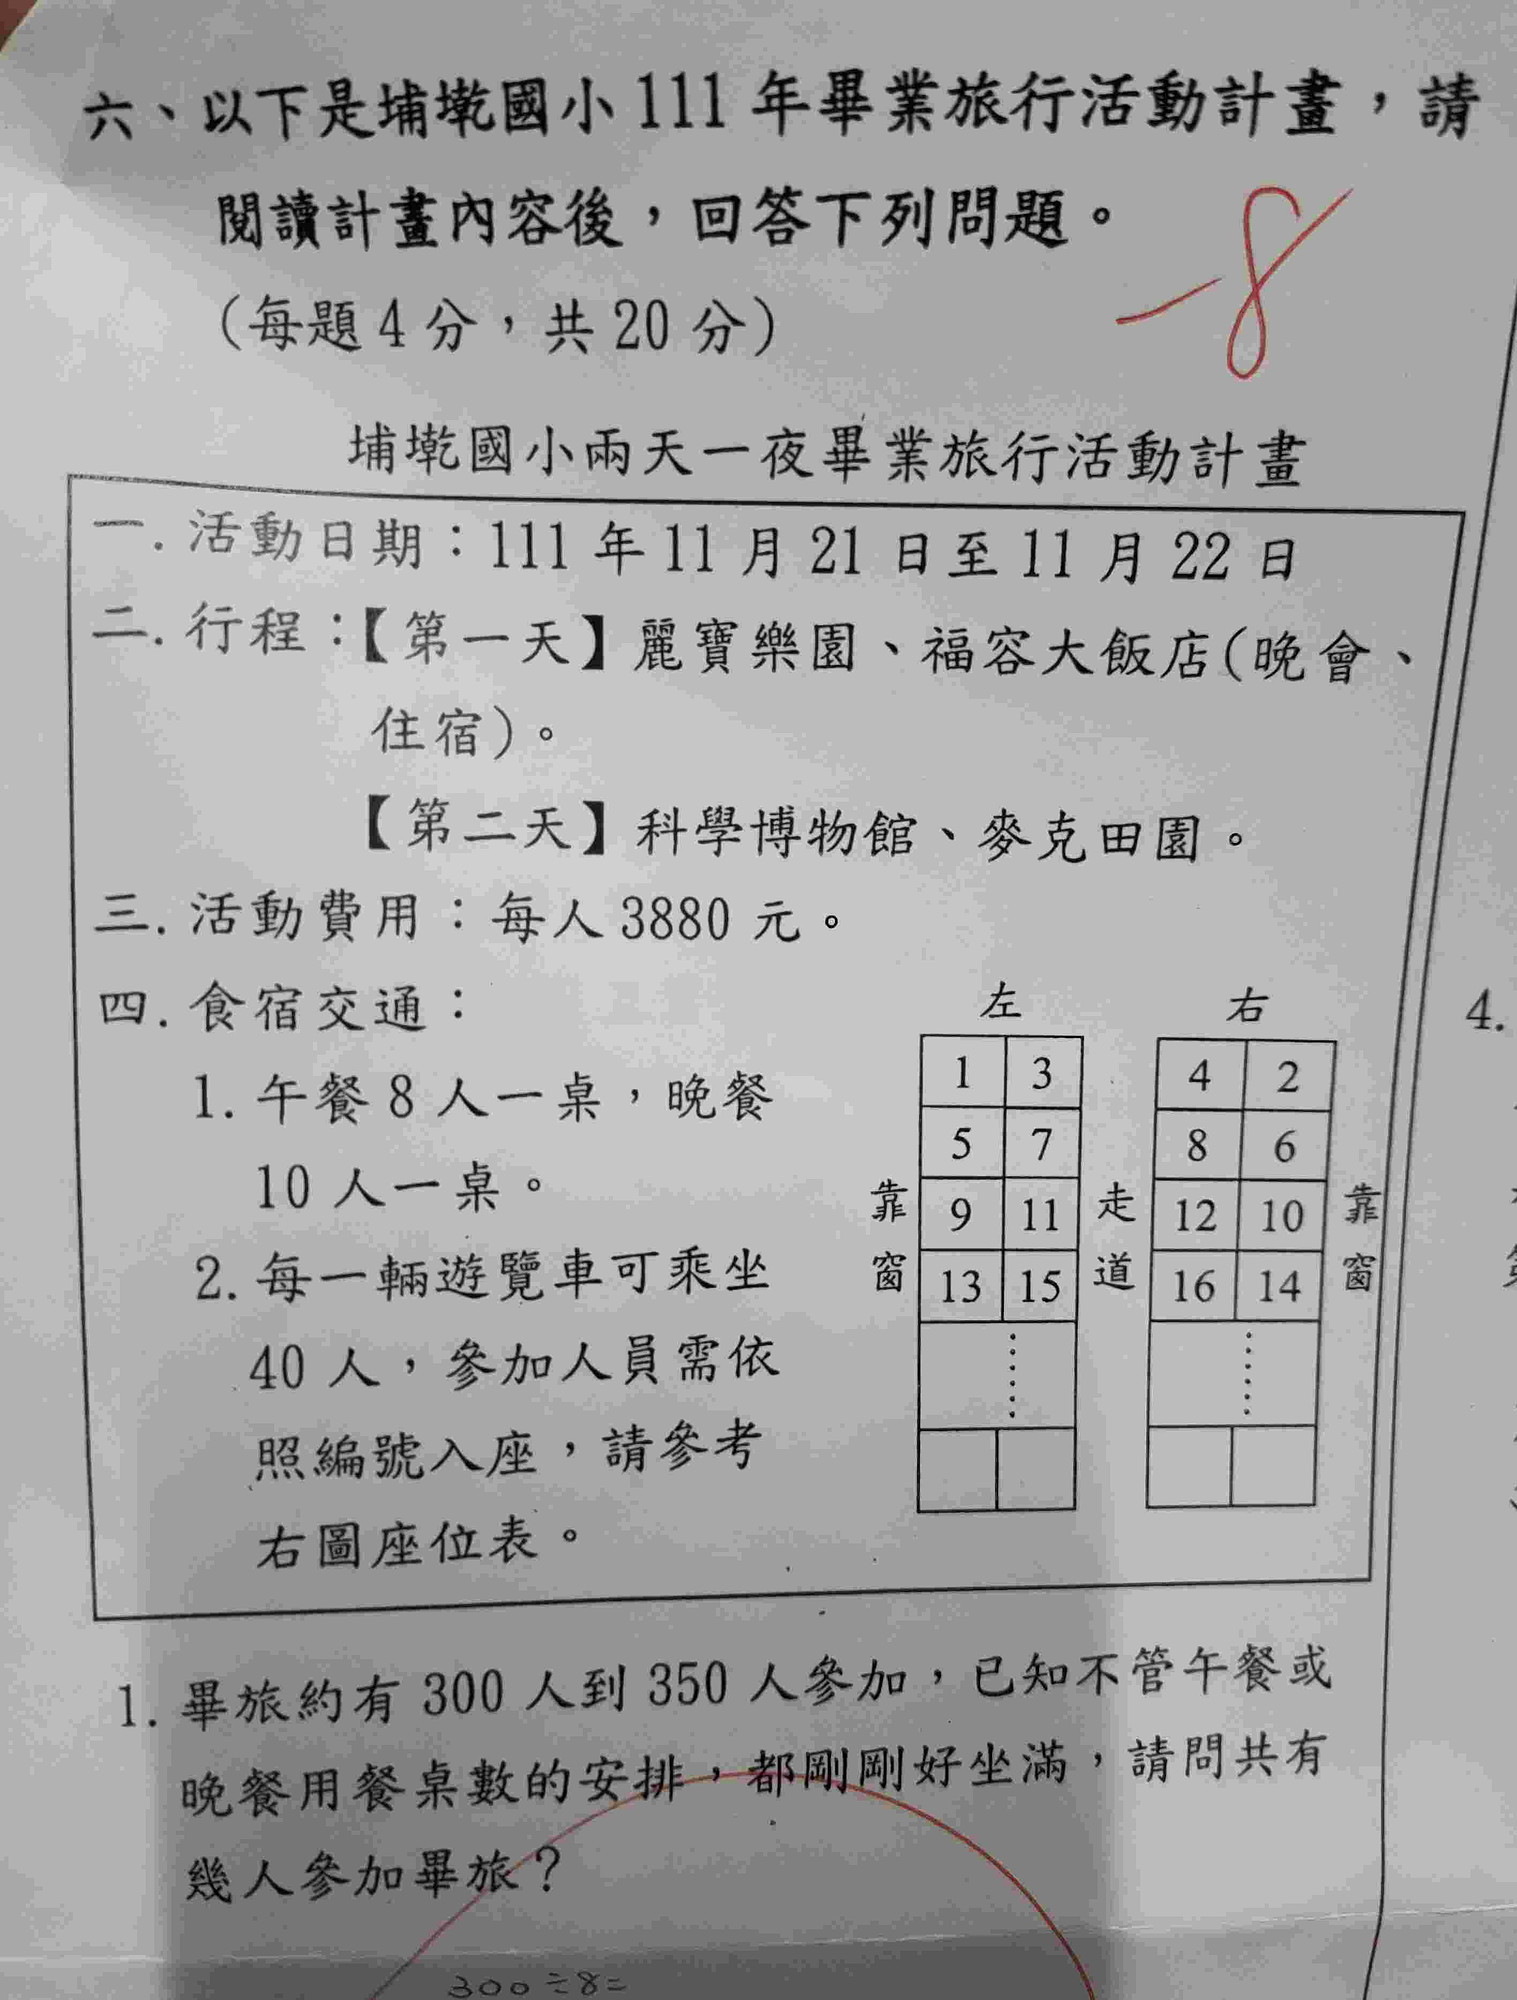 六、以下是埔墘國小111年畢業旅行活動計畫，請
閱讀計畫內容後，回答下列問題。
-8
（每題4分，共20分）
埔墘國小兩天一夜畢業旅行活動計畫
一.活動日期：111年11月21日至11月22日
二.行程：【第一天】麗寶樂園、福容大飯店(晚會、
住宿)。
【第二天】科學博物館、麥克田園。
三.活動費用：每人3880元。
四.食宿交通：
1.午餐8人一桌，晚餐
10人一桌。
2.每一輛遊覽車可乘坐
40人，參加人員需依
照編號入座，請參考
右圖座位表。
左 右
1 3 4 2
5 7 8 6
靠窗 9 11 走道 12 10 靠窗
13 15 16 14
…… ……
1.畢旅約有300人到350人參加，已知不管午餐或
晚餐用餐桌數的安排，都剛剛好坐滿，請問共有
幾人參加畢旅？
300÷8=
4.